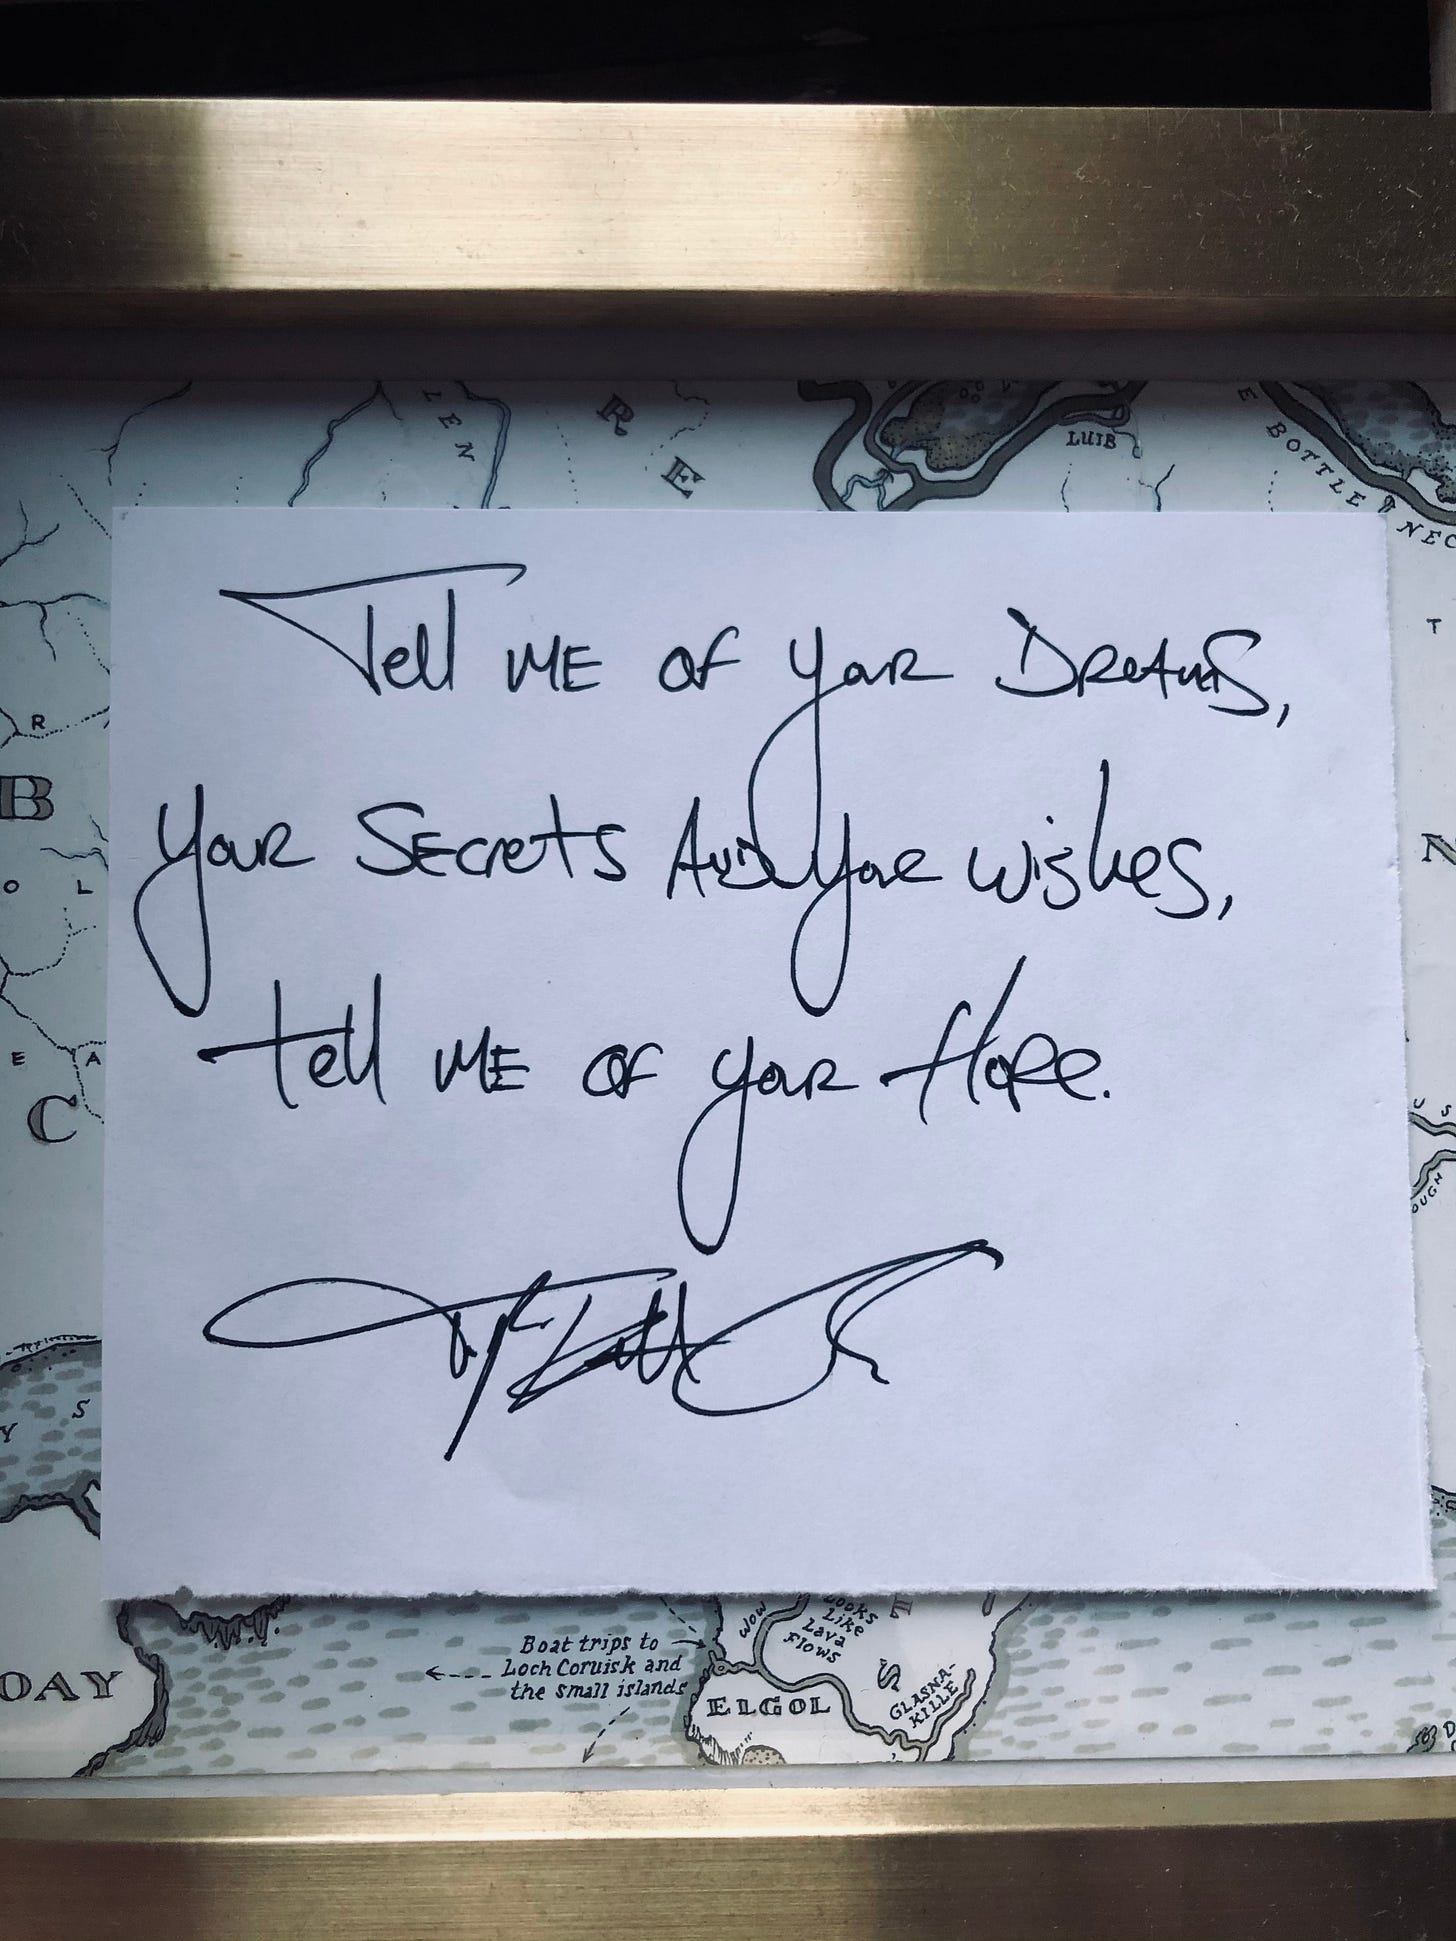 R
E
LEN
LUIB
BOTTLE NEC
T
R
B
O L
N
E A
C
Tell ME of your Dreams,
your Secrets And your wishes,
tell ME of your Hope.
Y S
OUGH
U S
OAY
Boat trips to
Loch Coruisk and
the small islands
WOW
Looks
Like
Lava
Flows
ELGOL
S
GLASNA-
KILLE